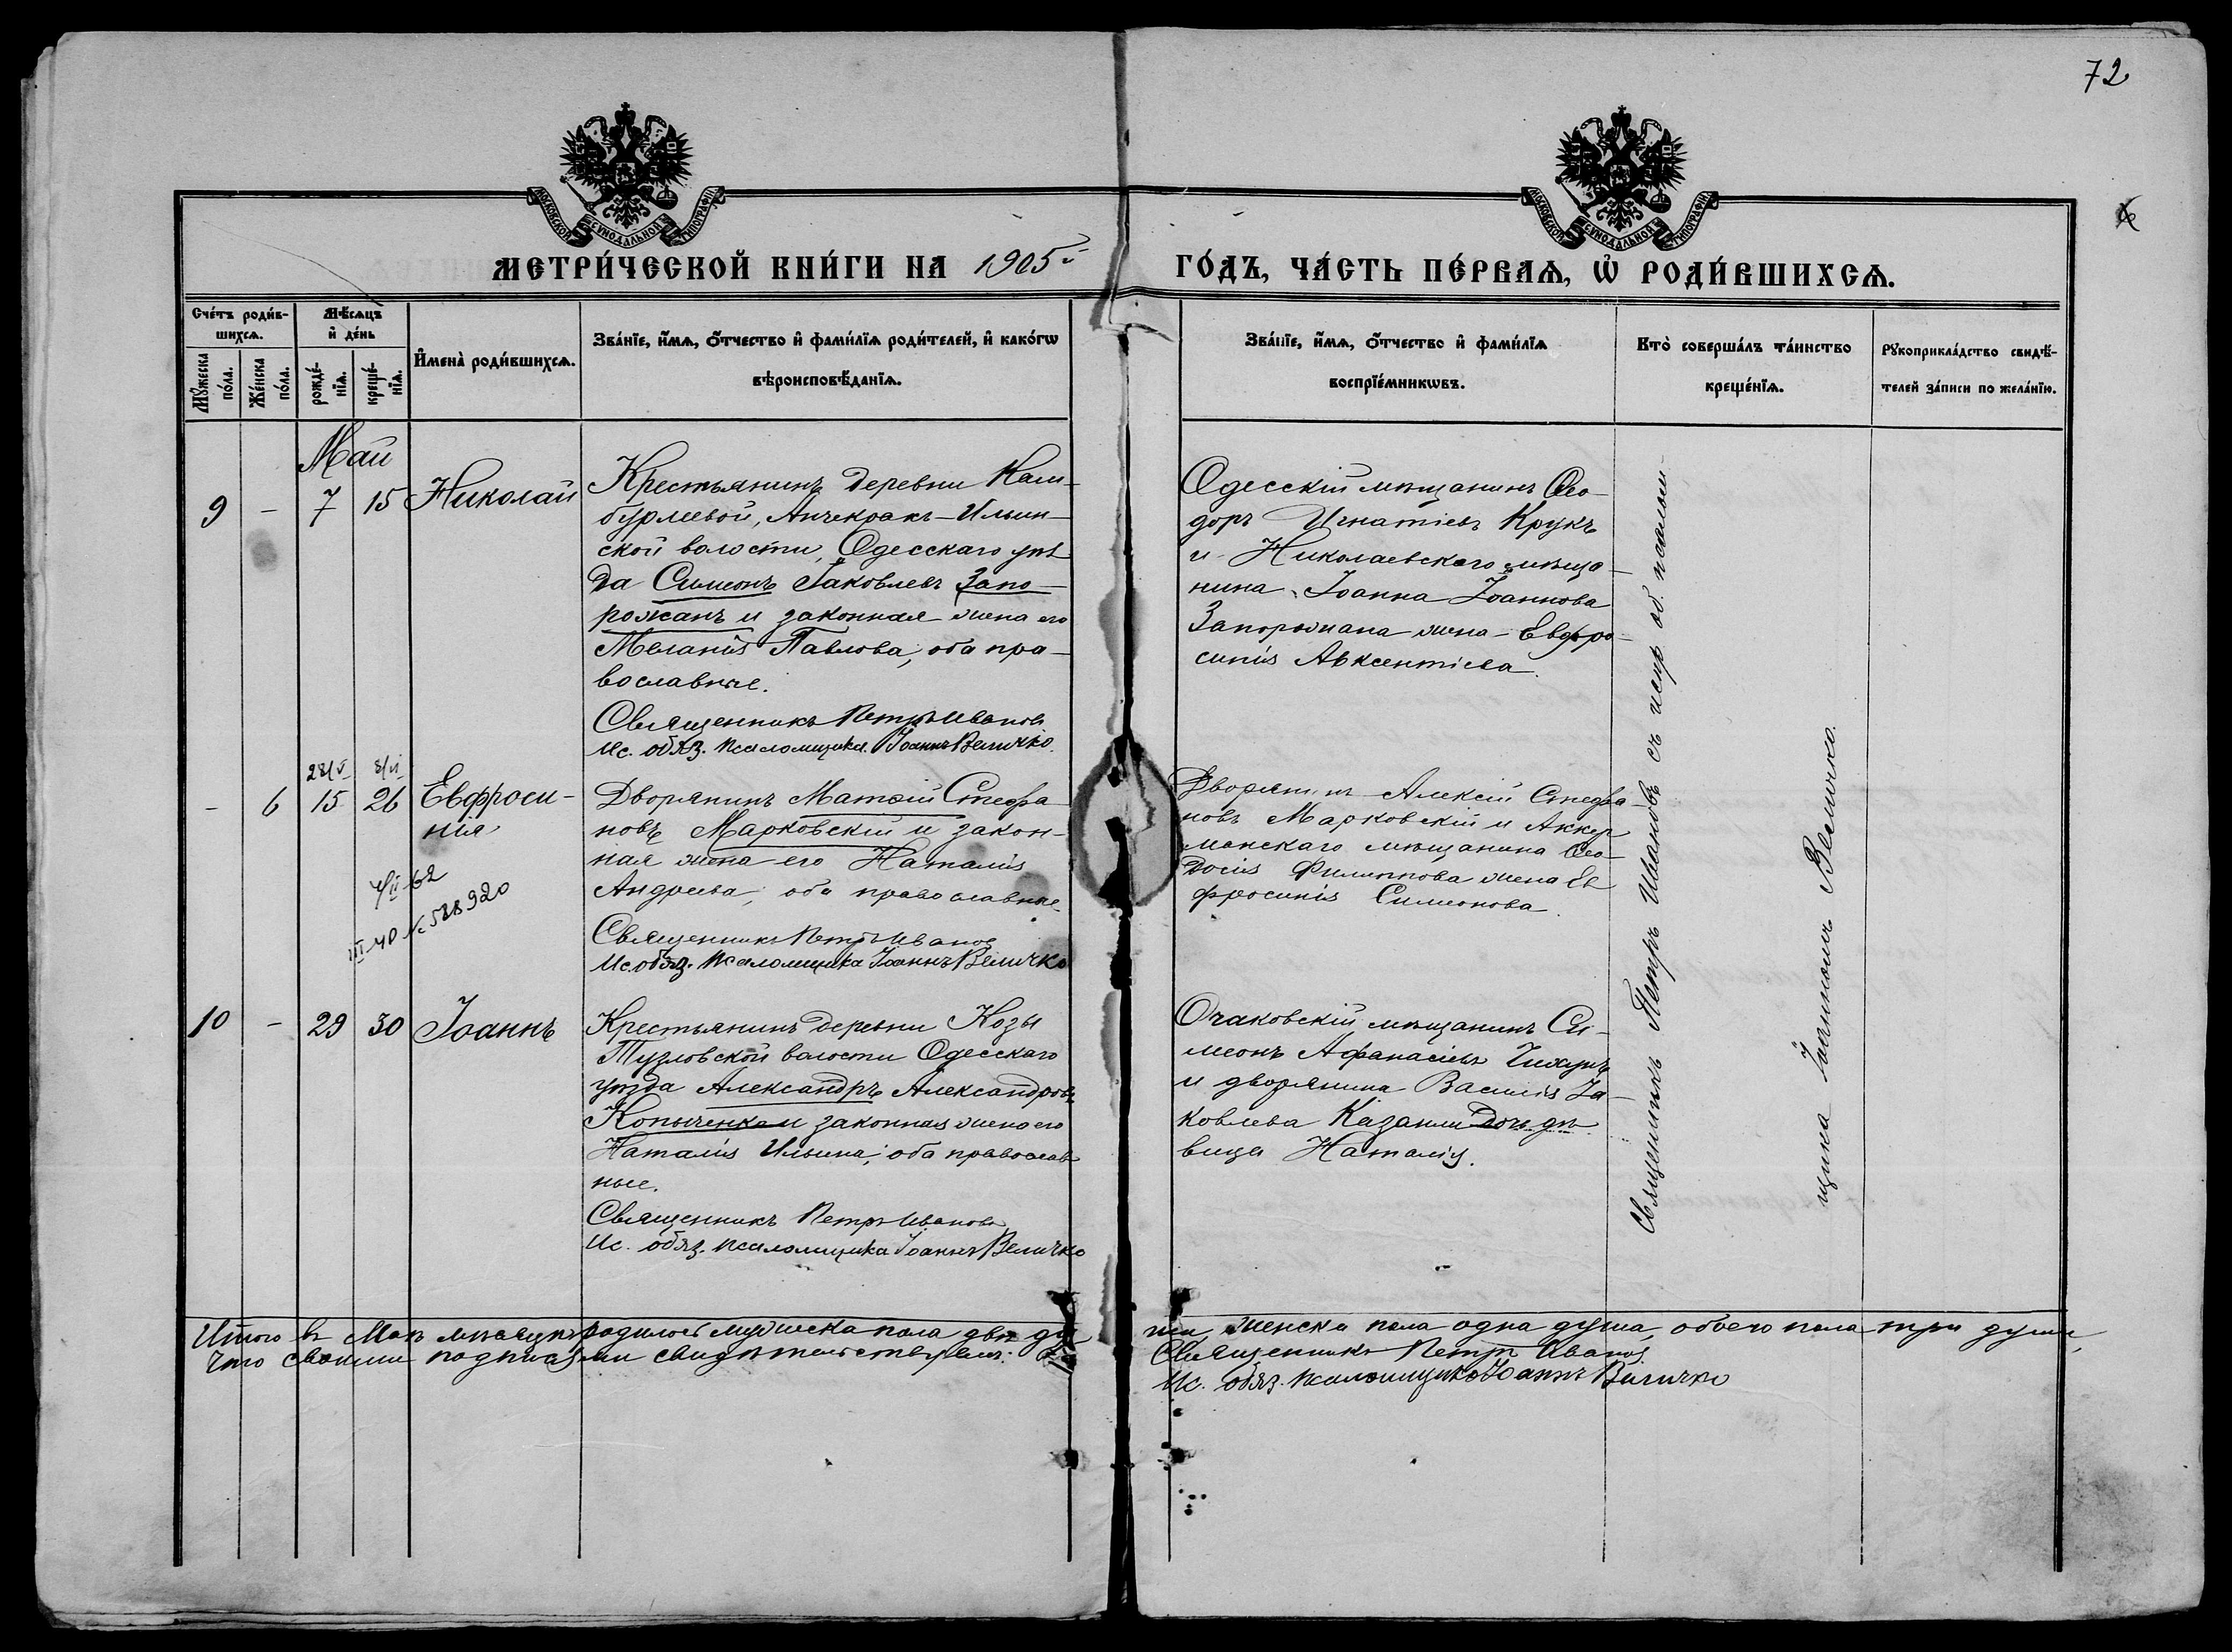 72
МОСКОВСКОЙ СУНОДАЛЬНОЙ ТИПОГРАФІИ
МОСКОВСКОЙ СУНОДАЛЬНОЙ ТИПОГРАФІИ
МЕТРИ́ЧЕСКОЙ КНИ́ГИ НА 1905й
ГО́ДЪ, ЧА́СТЬ ПЕ́РВАѦ, Ѡ҆ РОДИ́ВШИХСѦ.
Сче́тъ роди́в-
шихсѧ.
Мꙋ́жеска
по́ла.
Же́нска
по́ла.
Мѣ́сѧцъ
и҆ де́нь
рожде́-
нїѧ.
креще́-
нїѧ.
И҆мена̀ роди́вшихсѧ.
Зва́нїе, и҆́мѧ, ѻ҆́тчество и҆ фами́лїѧ роди́телей, и҆ како́гѡ
вѣроисповѣ́данїѧ.
Зва́нїе, и҆́мѧ, ѻ҆́тчество и҆ фами́лїѧ
воспрїе́мникѡвъ.
Кто̀ соверша́лъ та́инство
креще́нїѧ.
Рꙋкоприкла́дство свидѣ́-
телей за́писи по жела́нїю.
Май
9 - 7 15 Николай
Крестьянинъ деревни Кам-
бурлеевой, Анчекрак-Ильин-
ской волости, Одесскаго уѣз
да Симеонъ Іаковлевъ Запо-
рожанъ и законная жена его
Меланія Павлова, оба пра-
вославные.
Священникъ Петръ Иванов
Ис. обяз. псаломщика Іоаннъ Величко.
Одесскій мѣщанинъ Ѳео-
доръ Игнатіевъ Крукъ
и Николаевскаго мѣща-
нина Іоанна Іоаннова
Запорожана жена Евфро-
синія Авксентіева.
28/V 8/VI
- 6 15 26 Евфроси-
нія
62
III-ЧО № 588920
Дворянинъ Матѳій Стефа
новъ Марковскій и закон-
ная жена его Наталія
Андреева, оба православные.
Священникъ Петръ Иванов
Ис. обяз. псаломщика Іоаннъ Величко
Дворянинъ Алексій Стефа-
новъ Марковскій и Аккер
манскаго мѣщанина Ѳео-
досія Филиппова жена Ев
фросинія Симеонова.
10 - 29 30 Іоаннъ
Крестьянинъ деревни Козы
Тузловской волости Одесскаго
уѣзда Александръ Александровъ
Копыченко и законная жена его
Наталія Ильина, оба православ
ные.
Священникъ Петръ Иванов
Ис. обяз. псаломщика Іоаннъ Величко
Очаковскій мѣщанинъ Си-
меонъ Афанасіевъ
и дворянина Василія Іа-
ковлева Казанли дочь дѣ-
вица Наталія.
Священникъ Петръ Ивановъ съ испр. об. псалом-
щика Іоанномъ Величко.
Итого въ Маѣ мѣсяцѣ родилось мужеска пола двѣ ду
ши, женска пола одна душа, обоего пола три души,
что своими подписями свидѣтельствуемъ:
Священникъ Петръ Иванов
Ис. обяз. псаломщика Іоаннъ Величко